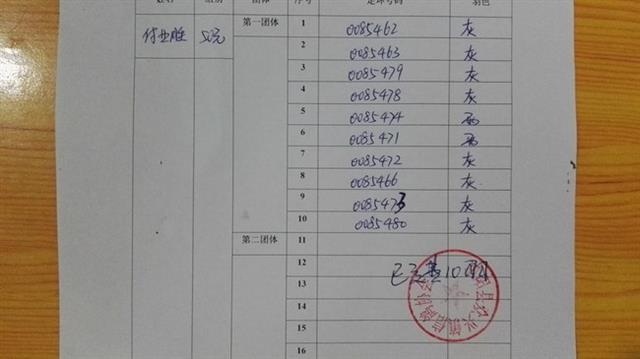 姓名 组别 团体 序号 足环号码 羽色
付亚胜 50元 第一团体 1 0085462 灰
2 0085463 灰
3 0085479 灰
4 0085478 灰
5 0085474 雨
6 0085471 雨
7 0085472 灰
8 0085466 灰
9 0085473 灰
10 0085480 灰
第二团体 11
12
13
14
15
16